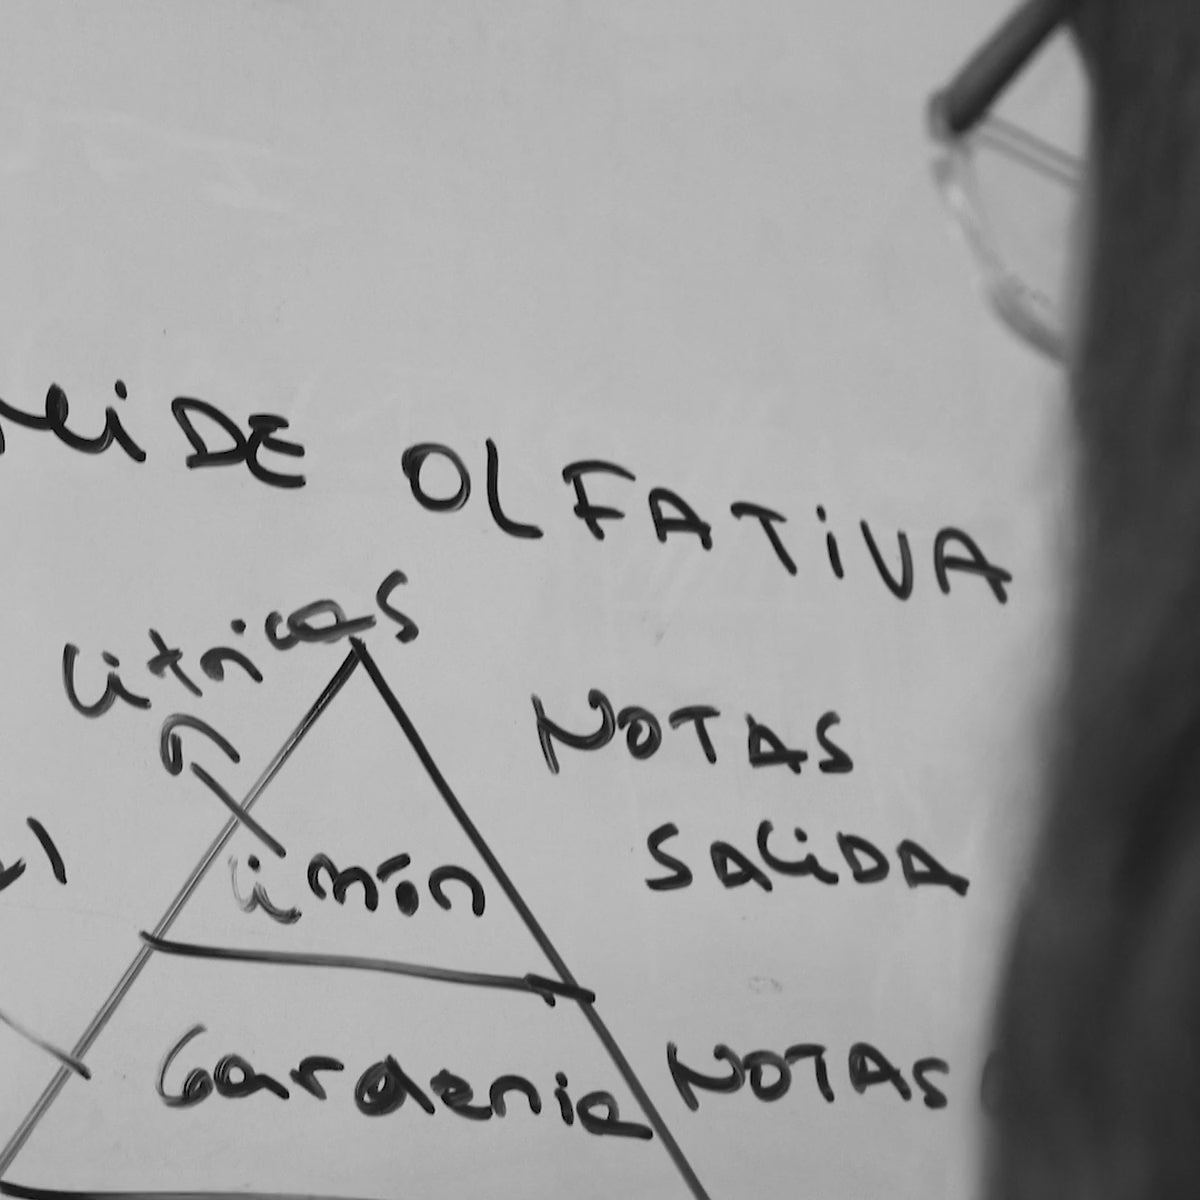 OLFATIVA
Citricas
NOTAS
SALiDA
limón
Gardenia NOTAS